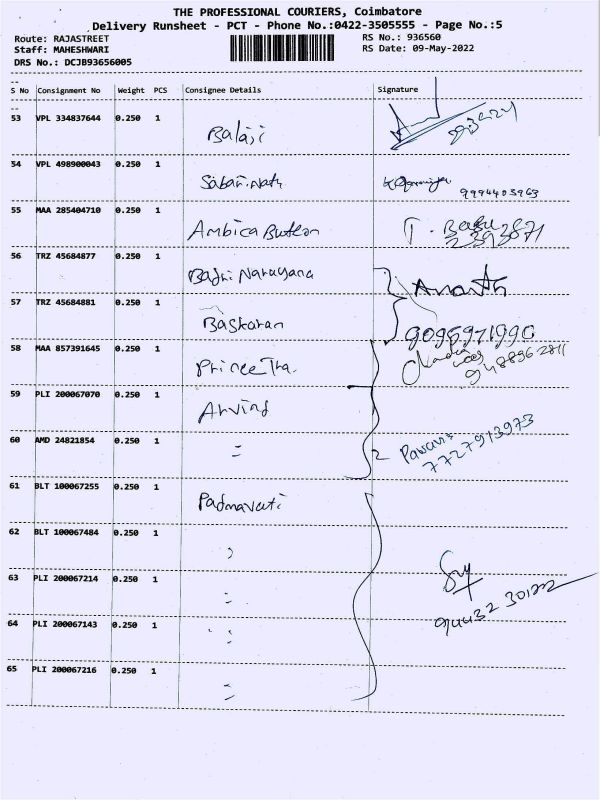 THE PROFESSIONAL COURIERS, Coimbatore
Delivery Runsheet - PCT - Phone No.:0422-3505555 - Page No.:5
Route: RAJASTREET RS No.: 936560
Staff: MAHESHWARI RS Date: 09-May-2022
DRS No.: DCJB93656005
S No Consignment No Weight PCS Consignee Details Signature
53 VPL 334837644 0.250 1 Balaji
54 VPL 498900043 0.250 1 Sabari Nath 9994403963
55 MAA 285404710 0.250 1 Ambica Button T. Babu
2393871
56 TRZ 45684877 0.250 1 Badri Narayana Ananth
57 TRZ 45684881 0.250 1 Baskaran 9095971990
58 MAA 857391645 0.250 1 Princee Tra. 9488962811
59 PLI 200067070 0.250 1 Arvind
60 AMD 24821854 0.250 1 = 2 Pawan
7727913973
61 BLT 100067255 0.250 1 Padmavati
62 BLT 100067484 0.250 1
63 PLI 200067214 0.250 1 =
64 PLI 200067143 0.250 1 = 94432 30122
65 PLI 200067216 0.250 1 =